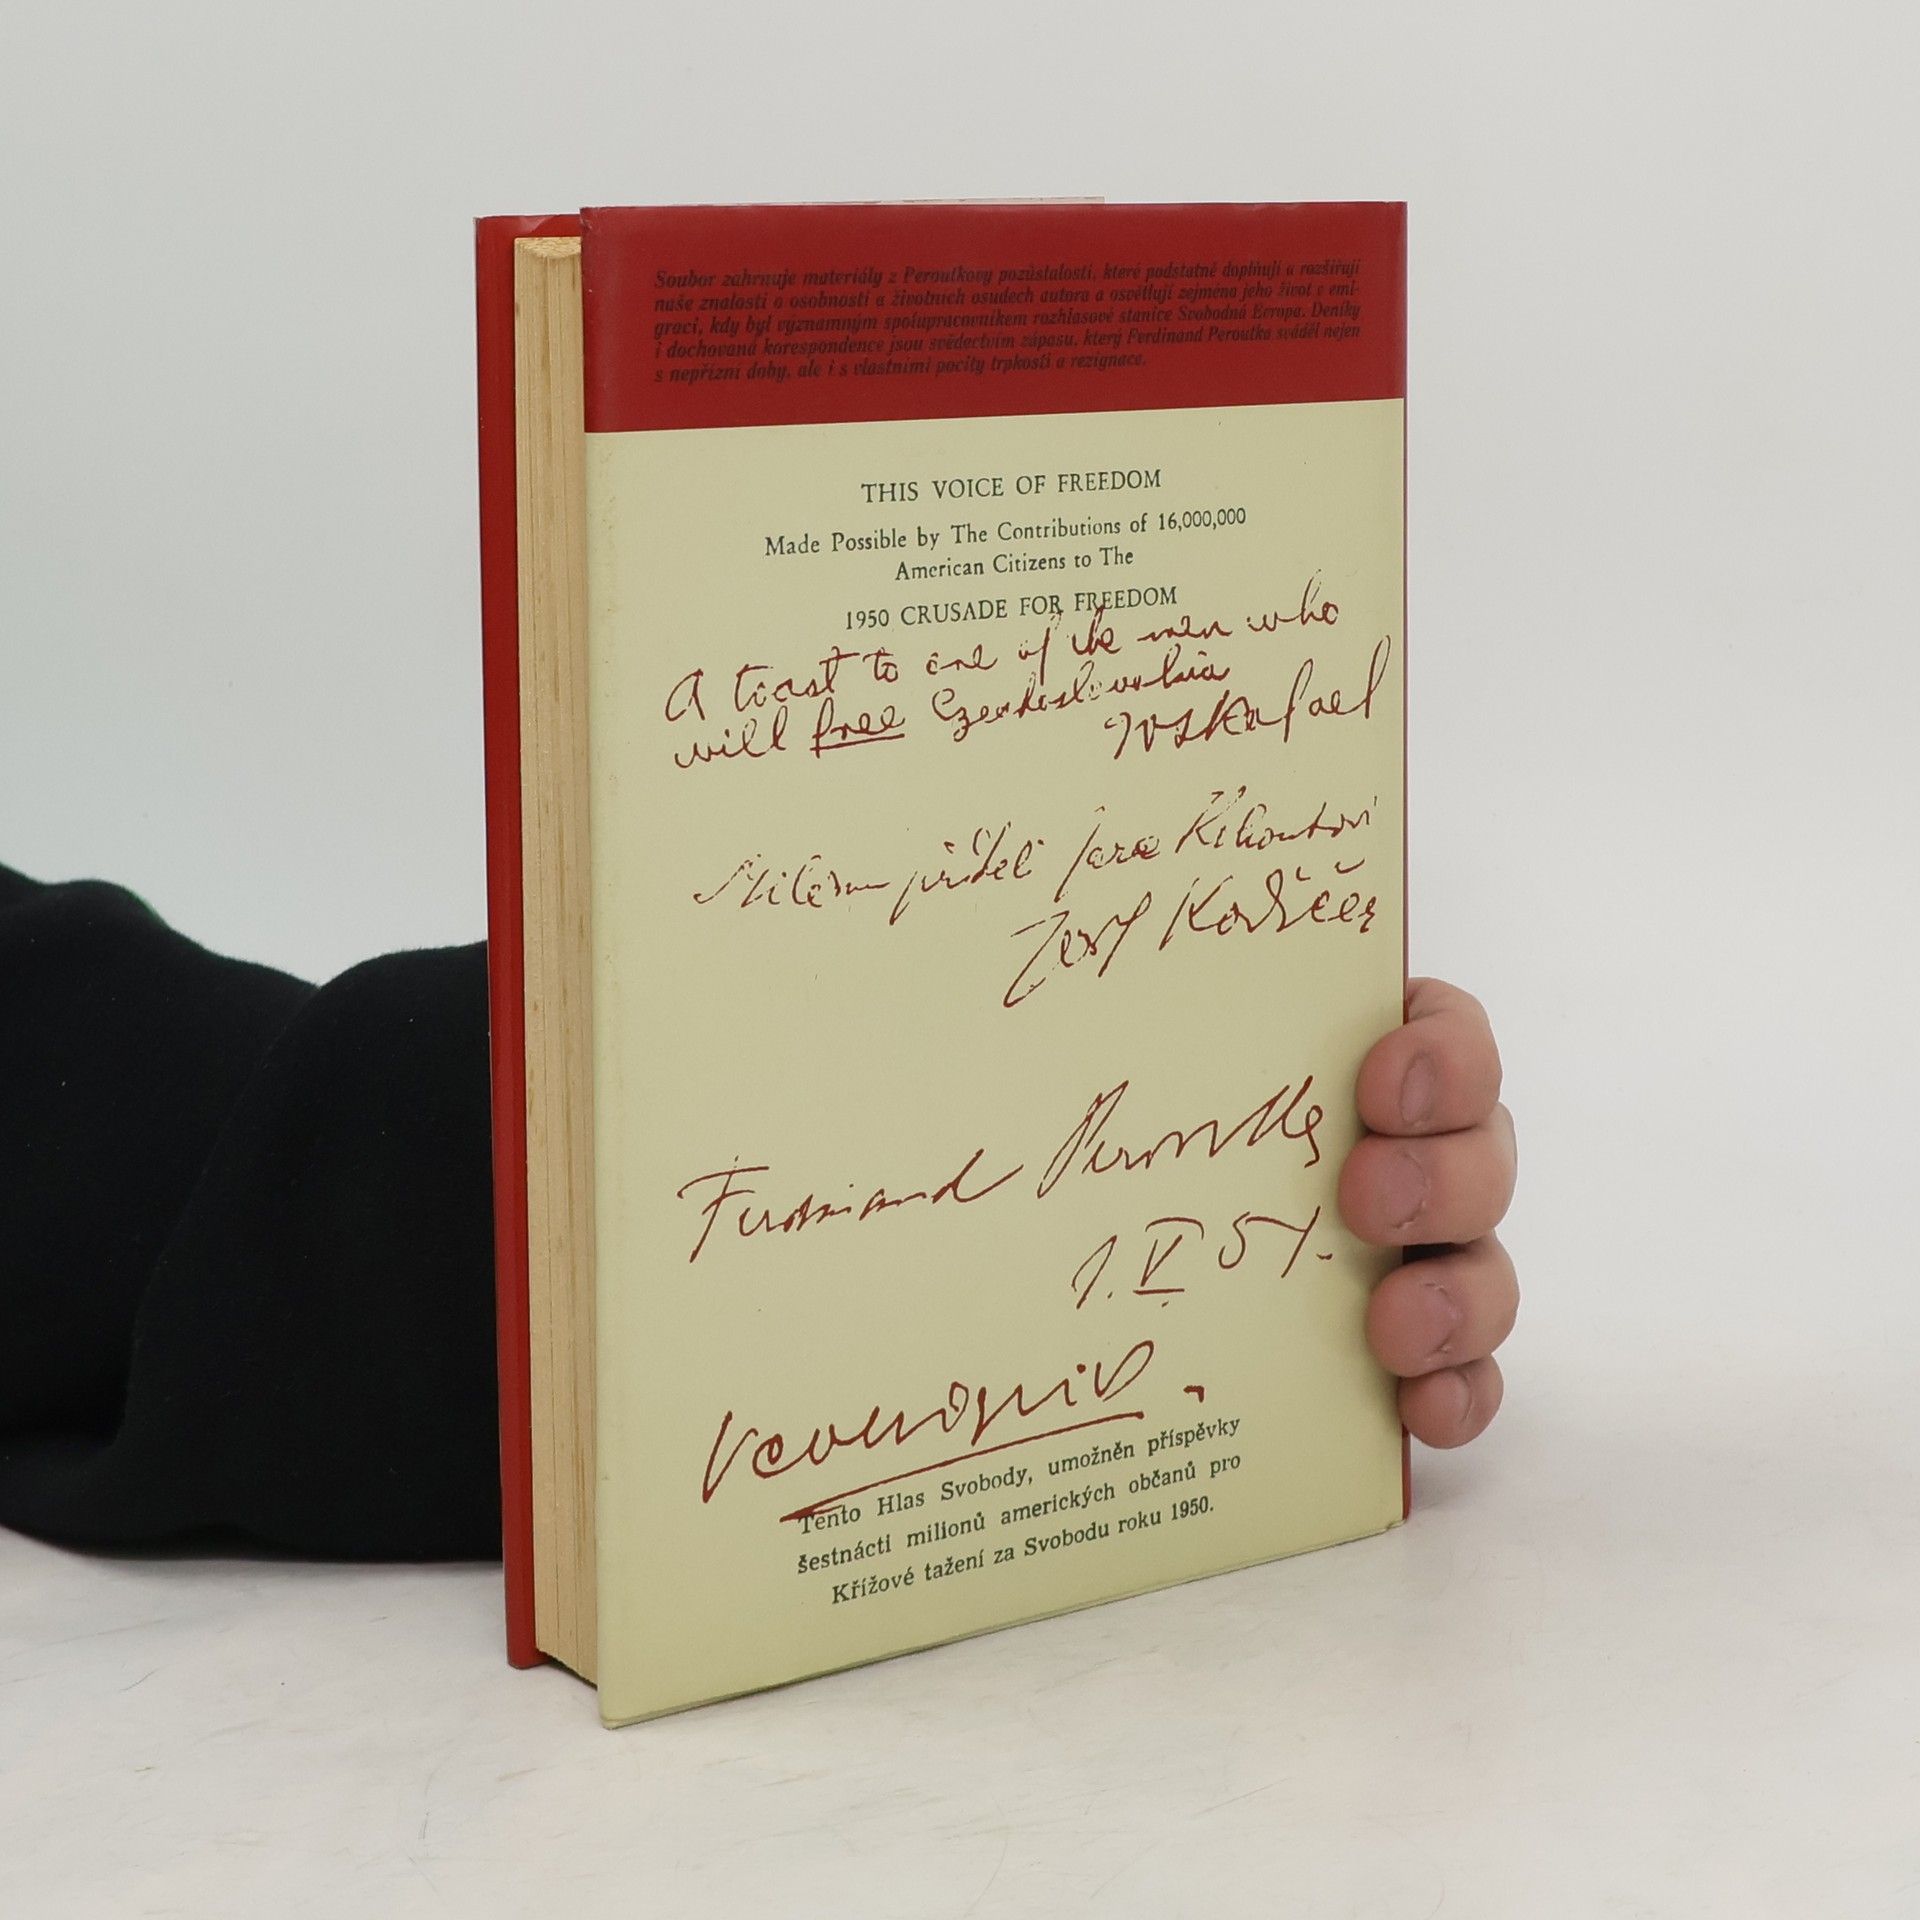 Soubor zahrnuje materiály z Peroutkovy pozůstalosti, které podstatně doplňují a rozšiřují
naše znalosti o osobnosti a životních osudech autora a osvětlují zejména jeho život v emi-
graci, kdy byl významným spolupracovníkem rozhlasové stanice Svobodná Evropa. Deníky
i dochovaná korespondence jsou svědectvím zápasu, který Ferdinand Peroutka sváděl nejen
s nepřízní doby, ale i s vlastními pocity trpkosti a rezignace.
THIS VOICE OF FREEDOM
Made Possible by The Contributions of 16,000,000
American Citizens to The
1950 CRUSADE FOR FREEDOM
A toast to one of the men who
will free Czechoslovakia
Milému příteli Jara Kohoutovi
Josef Kodíček
Ferdinand Peroutka
1. V. 51.
Tento Hlas Svobody, umožněn příspěvky
šestnácti milionů amerických občanů pro
Křížové tažení za Svobodu roku 1950.